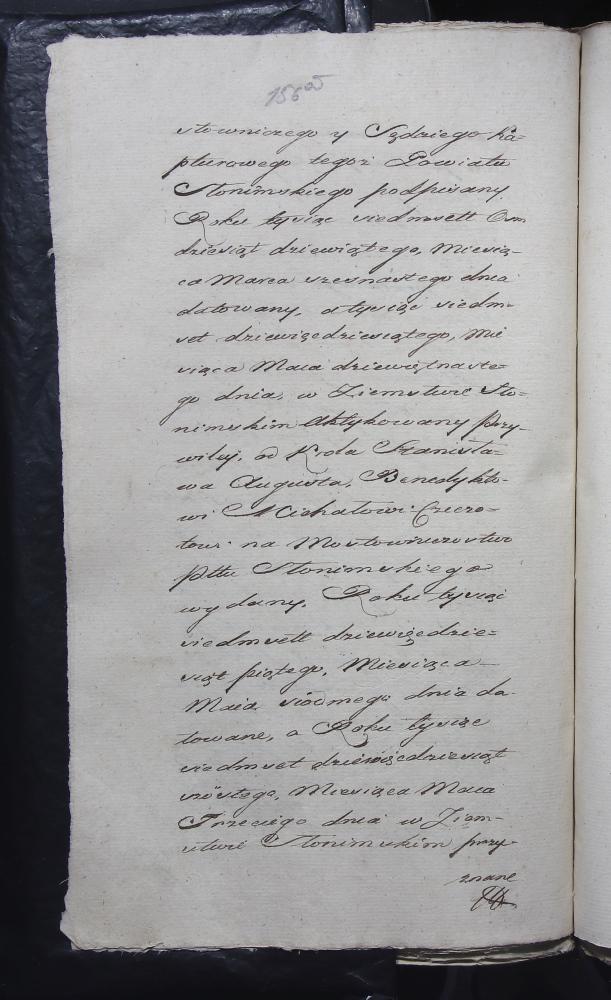 156 об
stowniczego y Sędziego Ka=
pturowego tegoż Powiatu
Słonimskiego podpisany.
Roku tysiąc siedmsett Osm
dziesiąt dziewiątego, Miesią-
ca Marca szesnastego dnia
datowany, a tysiąc siedm-
set dziewięcdziesiątego, Mie
siąca Maia dziewiętnaste-
go dnia, w Ziemstwie Sło=
nimskim Aktykowany Przy-
wiley, od Krola Stanisła-
wa Augusta, Benedykto-
wi Michałowi Czeczo-
towi na Mostowniczostwo
Pttu Słonimskiego
wydany. Roku tysiąc
siedmsett dziewięcdzie=
siąt piątego, Miesiąca
Maia siódmego dnia da
towane, a Roku tysiąc
siedmset dziewięcdziesiąt
szóstego, Miesiąca Maia
Trzeciego dnia w Ziem-
stwie Słonimskim przy-
znane